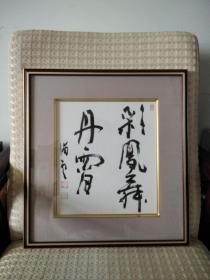 彩鳳舞
丹霄